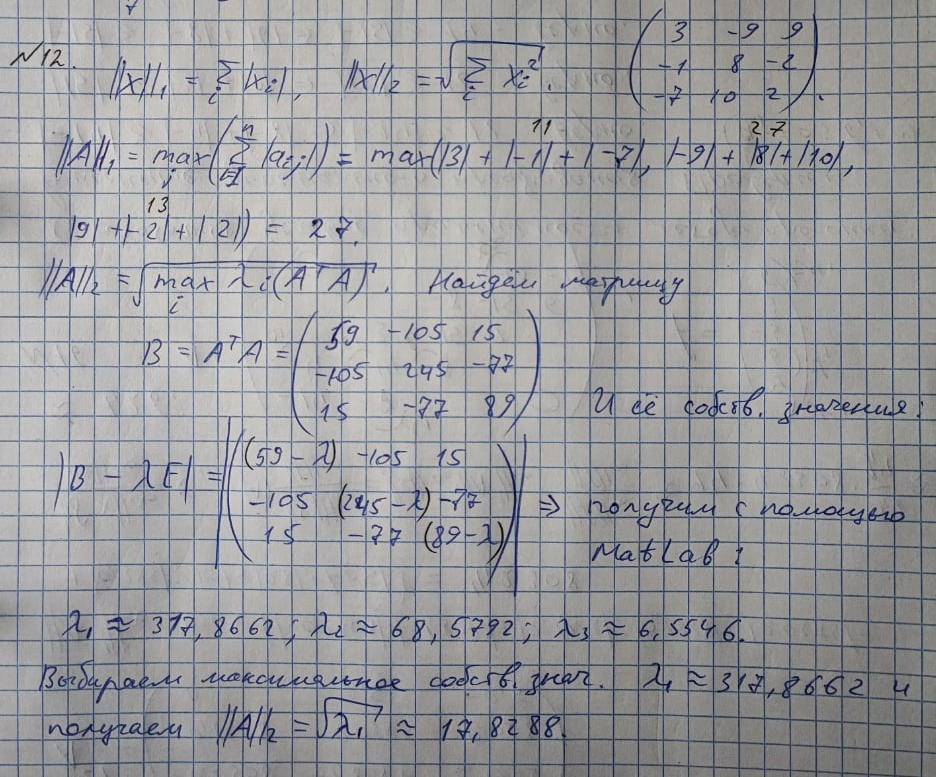 №12. ||x||₁ = Σᵢ |xᵢ|, ||x||₂ = √(Σᵢ xᵢ²). ( 3 -9 9
-1 8 -2
-7 10 2 ).
||A||₁ = max_j ( Σ_{i=1}^n |a_{ij}| ) = max( |3| + |-1| + |-7|, |-9| + |8| + |10|,
11 27
|9| + |-2| + |2| ) = 27.
13
||A||₂ = √(max_i λᵢ(AᵀA)). Найдём матрицу
B = AᵀA = ( 59 -105 15
-105 245 -77
15 -77 89 ) И её собств. значения:
|B - λE| = | ( (59 - λ) -105 15
-105 (245 - λ) -77
15 -77 (89 - λ) ) | ⇒ получим с помощью
MatLab:
λ₁ ≈ 317,8662; λ₂ ≈ 68,5792; λ₃ ≈ 6,5546.
Выбираем максимальное собств. знач. λ₁ ≈ 317,8662 и
получаем ||A||₂ = √λ₁ ≈ 17,8288.